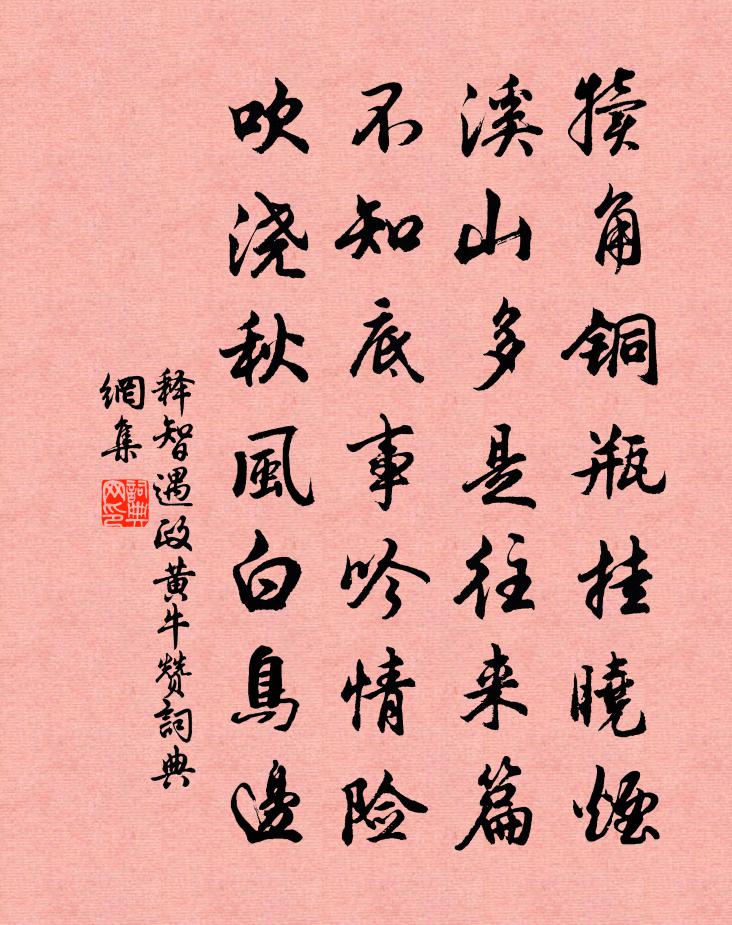 犢角铜瓶挂曉煙
溪山多是往来篇
不知底事吟情险
吹浇秋風白鳥邊
释智遇政黄牛赞詞典
網集
詞典网印